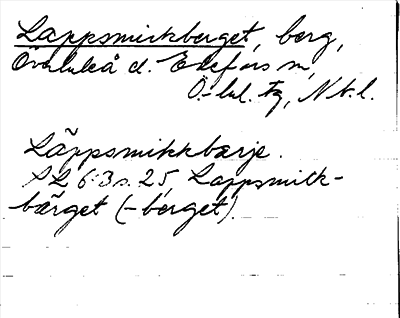 Lappsmickberget, berg,
Överluleå d. Edefors sn,
Ö.-lul. tg, Nb. l.
Läppsmikkbærje.
SL 6:3 s. 25, Lappsmick-
bärget (-berget).